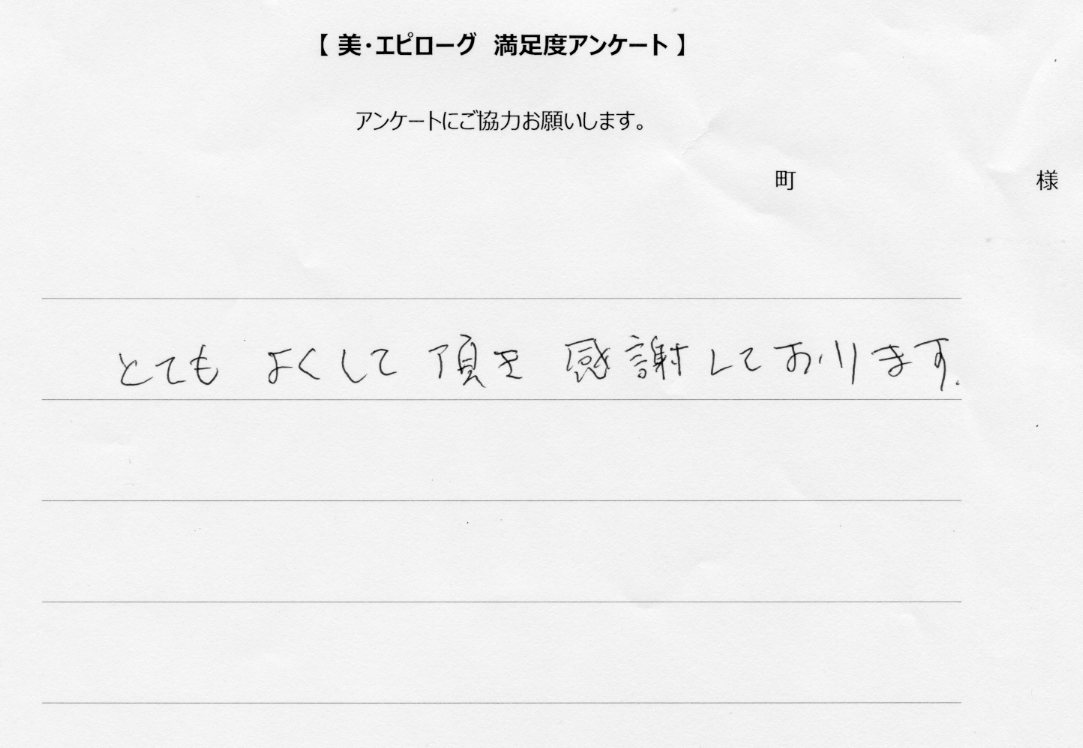 【 美・エピローグ 満足度アンケート 】
アンケートにご協力お願いします。
町 様
とても よくして 頂き 感謝しております.